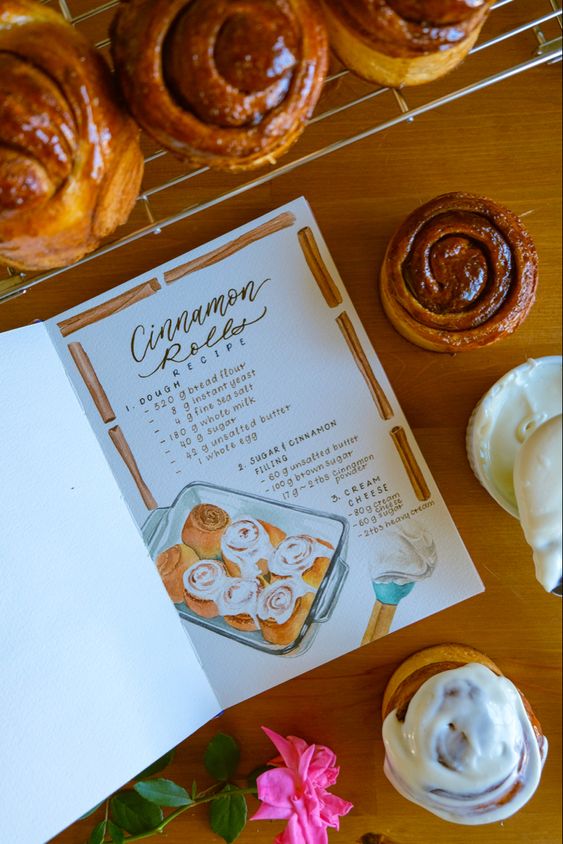 Cinnamon
Rolls
RECIPE
1. DOUGH
- 520 g bread flour
- 8 g instant yeast
- 4 g fine sea salt
- 180 g whole milk
- 40 g sugar
- 42 g unsalted butter
- 1 whole egg
2. SUGAR & CINNAMON
FILLING
- 60 g unsalted butter
- 100 g brown sugar
- 17 g ~ 2 tbs cinnamon
powder
3. CREAM
CHEESE
- 80 g cream
cheese
- 60 g sugar
- 2 tbs heavy cream